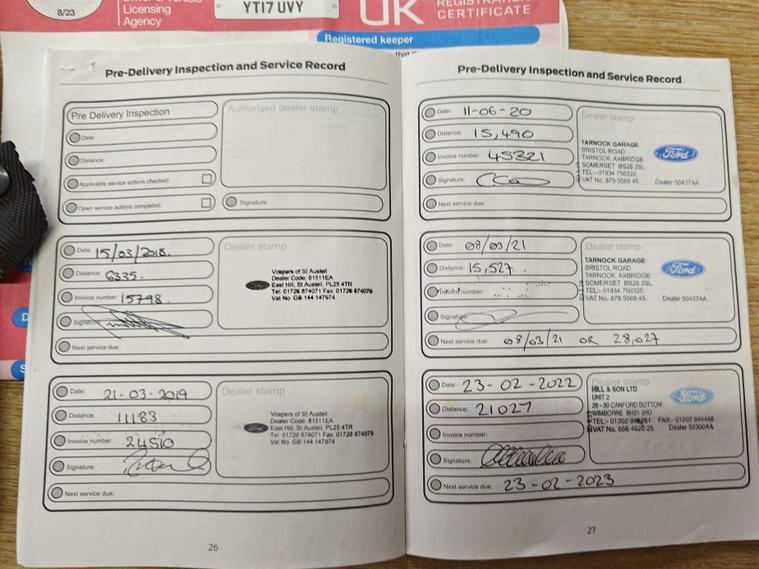 8/23
Licensing
Agency
YT17 UVY
UK
REGISTRATION
CERTIFICATE
Registered keeper
Pre-Delivery Inspection and Service Record
Pre Delivery Inspection
Date:
Distance:
Applicable service actions checked:
Open service actions completed:
Authorised dealer stamp
Signature:
Date: 15/03/2018.
Distance: 6335.
Invoice number: 15798
Signature:
Next service due:
Dealer stamp
Vospers of St Austell
Dealer Code: 81511EA
East Hill, St Austell, PL25 4TR
Tel: 01726 874071 Fax: 01726 874079
Vat No. GB 144 147974
Date: 21-03-2019
Distance: 11183
Invoice number: 24510
Signature:
Next service due:
Dealer stamp
Ford
Vospers of St Austell
Dealer Code: 81511EA
East Hill, St Austell, PL25 4TR
Tel: 01726 874071 Fax: 01726 874079
Vat No. GB 144 147974
26
Pre-Delivery Inspection and Service Record
Date: 11-06-20
Distance: 15,490
Invoice number: 45321
Signature:
Next service due:
Dealer stamp
TARNOCK GARAGE
BRISTOL ROAD
TARNOCK, AXBRIDGE
SOMERSET BS26 2SL
TEL:- 01934 750320
VAT No. 879 5568 45 Dealer 50437AA
Ford
Date: 08/03/21
Distance: 15,527
Invoice number:
Signature:
Next service due: 08/03/21 OR 28,027
Dealer stamp
TARNOCK GARAGE
BRISTOL ROAD
TARNOCK, AXBRIDGE
SOMERSET BS26 2SL
TEL:- 01934 750320
VAT No. 879 5568 45 Dealer 50437AA
Ford
Date: 23-02-2022
Distance: 21027
Invoice number:
Signature:
Next service due: 23-02-2023
Dealer stamp
HILL & SON LTD
UNIT 2
26 - 30 CANFORD BOTTOM
WIMBORNE BH21 2HD
TEL:- 01202 FAX:- 01202 849448
VAT No. 656 4620 25 Dealer 50300AA
Ford
27